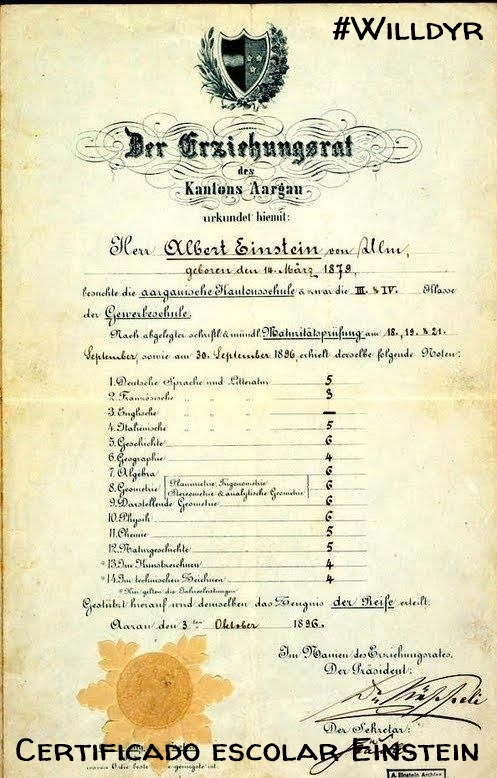 #Willdyr
Der Erziehungsrat
des
Kantons Aargau
urkundet hiemit:
Herr Albert Einstein von Ulm,
geboren den 14. März 1879,
besuchte die aargauische Kantonsschule & zwar die III. & IV. Klasse
der Gewerbeschule.
Nach abgelegter schriftl. & mündl. Maturitätsprüfung am 18., 19. & 21.
September, sowie am 30. September 1896, erhielt derselbe folgende Noten:
1. Deutsche Sprache und Litteratur 5
2. Französische „ „ „ 3
3. Englische „ „ „ —
4. Italienische „ „ „ 5
5. Geschichte 6
6. Geographie 4
7. Algebra 6
8. Geometrie [Planimetrie, Trigonometrie 6
Stereometrie & analytische Geometrie]
9. Darstellende Geometrie 6
10. Physik 6
11. Chemie 5
12. Naturgeschichte 5
* 13. Im Kunstzeichnen 4
* 14. Im technischen Zeichnen 4
* Hier gelten die Jahresleistungen.
Gestützt hierauf wird demselben das Zeugnis der Reife erteilt.
Aarau den 3ten Oktober 1896.
Im Namen des Erziehungsrates,
Der Präsident:
Der Sekretär:
Certificado escolar Einstein
A. Einstein Archive